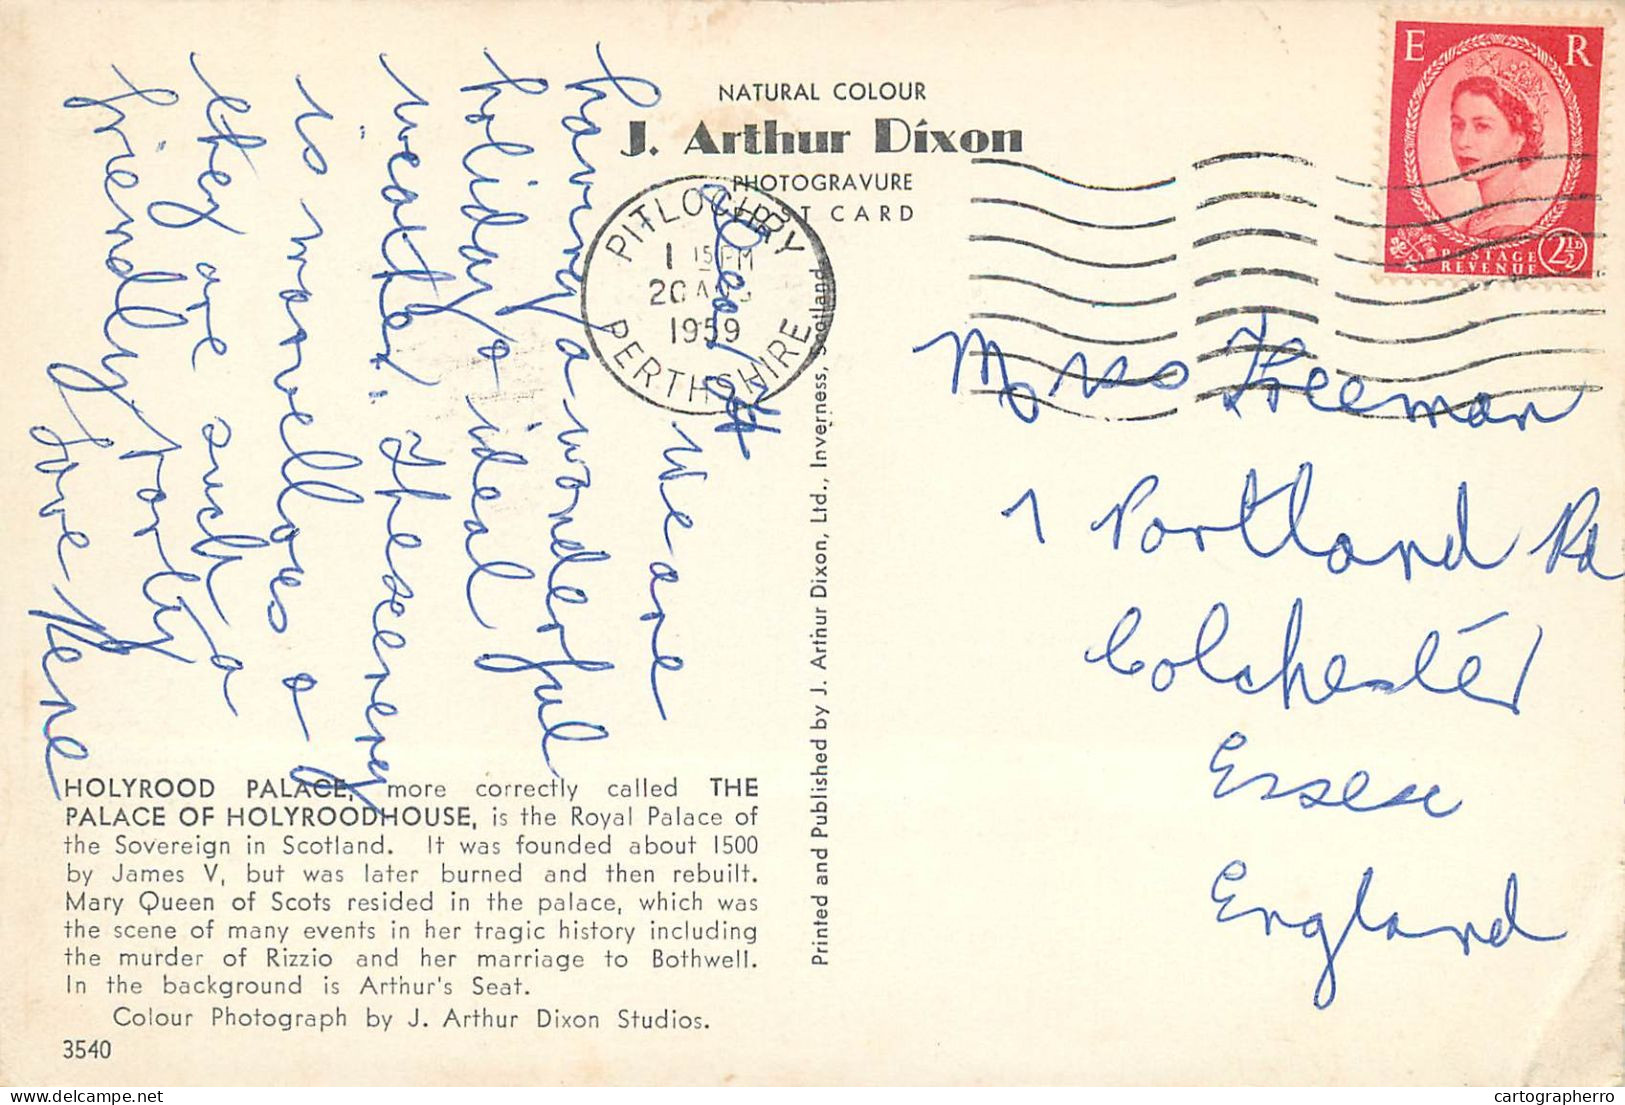 NATURAL COLOUR
J. Arthur Dixon
PHOTOGRAVURE
POST CARD
E R
POSTAGE
REVENUE
2½D
PITLOCHRY
1 15 PM
20 AUG
1959
PERTHSHIRE
We are
having a wonderful
holiday & ideal
weather. The scenery
is marvellous &
they are such a
friendly party
Love Rene
Mrs Freeman
1 Portland Rd
Colchester
Essex
England
Printed and Published by J. Arthur Dixon, Ltd., Inverness, Scotland
HOLYROOD PALACE, more correctly called THE
PALACE OF HOLYROODHOUSE, is the Royal Palace of
the Sovereign in Scotland. It was founded about 1500
by James V, but was later burned and then rebuilt.
Mary Queen of Scots resided in the palace, which was
the scene of many events in her tragic history including
the murder of Rizzio and her marriage to Bothwell.
In the background is Arthur's Seat.
Colour Photograph by J. Arthur Dixon Studios.
3540
www.delcampe.net
cartographerro